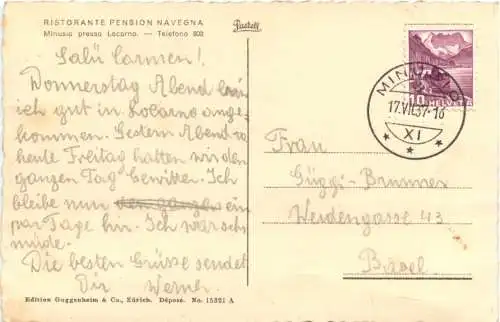 RISTORANTE PENSION NAVEGNA
Minusio presso Locarno. — Telefono 803
Pastell
Salü Carmen!
Donnerstag Abend bin
ich gut in Locarno ange-
kommen. Gestern Abend u.
heute Freitag hatten wir den
ganzen Tag Gewitter. Ich
bleibe nun den ganzen ein
par Tage hir. Ich war sch
müde.
Die besten Grüsse sendet
Dir Werner.
Edition Guggenheim & Co., Zürich. Déposé. No. 15321 A
10 HELVETIA
MINUSIO
17.VII.37-16
XI
Frau
Güggi-Brunner
Weidengasse 43
Basel